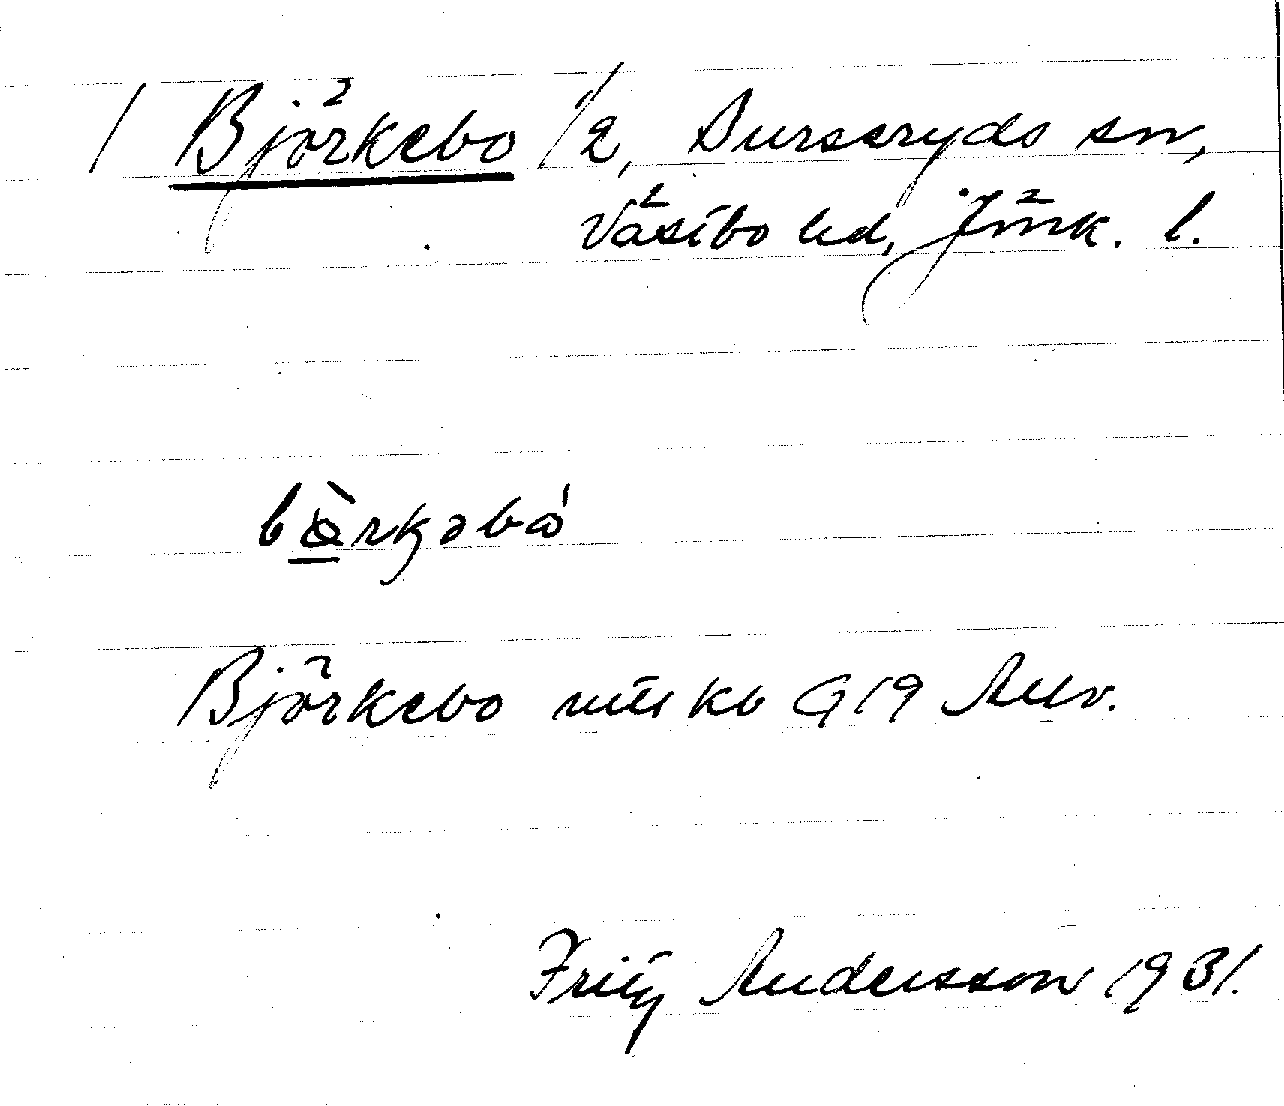 / Björkebo 1/2, Burseryds sn,
Västbo hd, Jönk. l.
bö̀rkəbó
Björkebo mtl kb G 19 Allv.
Fritz Andersson 1931.